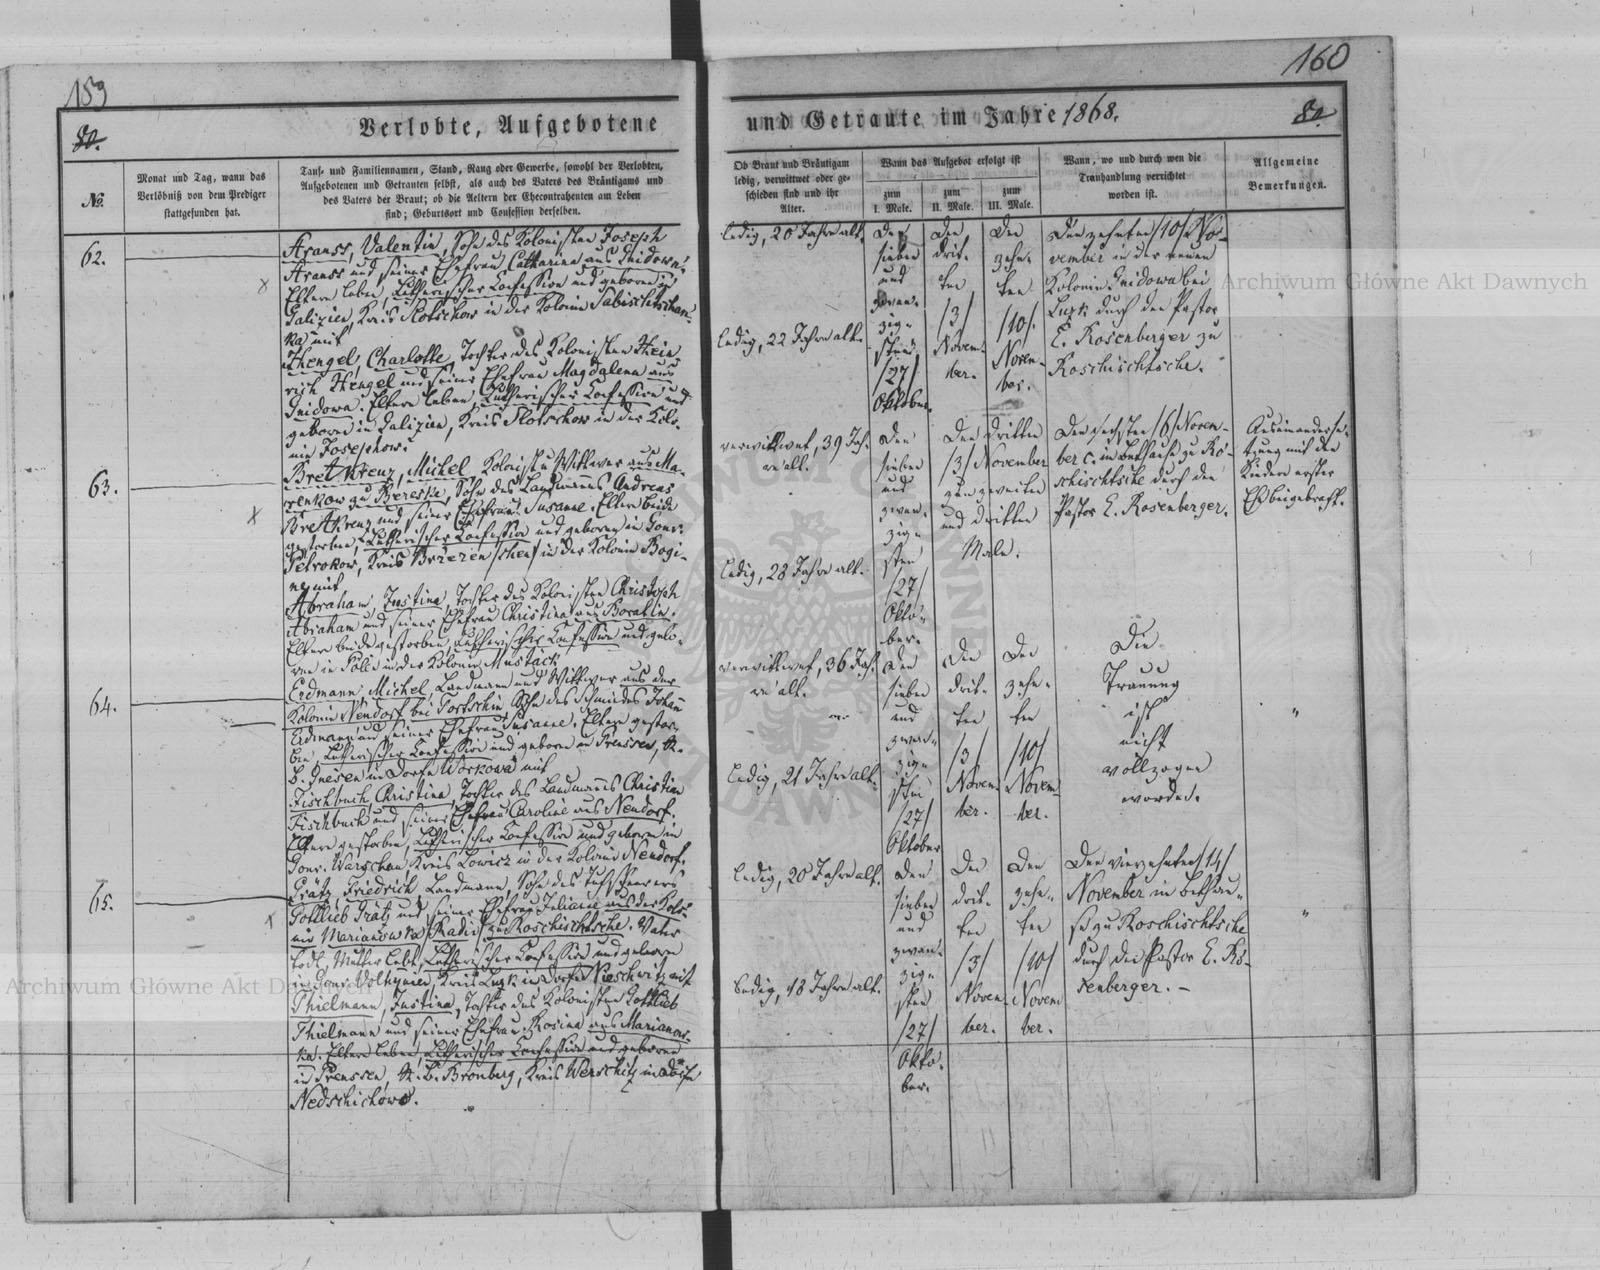 159
160
80.
Verlobte, Aufgebotene
und Getraute im Jahre 1868.
80.
№.
Monat und Tag, wann das
Verlöbniß von dem Prediger
stattgefunden hat.
Tauf- und Familiennamen, Stand, Rang oder Gewerbe, sowohl der Verlobten,
Aufgebotenen und Getrauten selbst, als auch des Vaters des Bräutigams und
des Vaters der Braut; ob die Aeltern der Ehecontrahenten am Leben
sind; Geburtsort und Confession derselben.
Ob Braut und Bräutigam
ledig, verwittwet oder ge-
schieden sind und ihr
Alter.
Wann das Aufgebot erfolgt ist
zum
I. Male.
zum
II. Male.
zum
III. Male.
Wann, wo und durch wen die
Trauhandlung verrichtet
worden ist.
Allgemeine
Bemerkungen.
62.
Valentin, Sohn des Kolonisten Joseph
und seiner Ehefrau Catharina aus Gnidowa.
Eltern leben, Lutherischer Confession und geboren in
Galizien, Kreis Slotschow in der Kolonie Sabischtschan-
ka mit
Hengel, Charlotte, Tochter des Kolonisten Hein-
rich Hengel und seiner Ehefrau Magdalena aus
Gnidowa. Eltern leben, Lutherischer Confession und
geboren in Galizien, Kreis Slotschow in der Kolo-
nie Josephow.
ledig, 20 Jahre alt.
ledig, 22 Jahre alt.
Den
sieben
und
zwan-
zig-
sten
/27/
Oktober.
Den
drit-
ten
/3/
Novem-
ber.
Den
zehn-
ten
/10/
Novem-
ber.
Den zehnten /10/ No-
vember in der neuen
Kolonie Gnidowa bei
Luzk durch den Pastor
E. Rosenberger zu
Roschischtsche.
"
63.
Bretkreuz, Michel, Kolonist u. Wittwer aus Ma-
renkow zu Bereska, Sohn des Landmanns Andreas
Bretkreuz und seiner Ehefrau Susanne. Eltern beide
gestorben, Lutherischer Confession und geboren in Gouv.
Petrokow, Kreis Brzezen/schen/ in der Kolonie Bogi-
ne mit
Abraham, Justina, Tochter des Kolonisten Christoph
Abraham und seiner Ehefrau Christina aus Boratin.
Eltern beide gestorben, Lutherischer Confession und gebo-
ren in Polen in der Kolonie Mustack
verwittwet, 39 Jah-
re alt.
ledig, 28 Jahre alt.
Den
sieben
und
zwan-
zig-
sten
/27/
Okto-
ber.
Den dritten
/3/ November
zum zweiten
und dritten
Male.
Den sechsten /6/ Novem-
ber c. im Bethause zu Ro-
schischtsche durch den
Pastor E. Rosenberger.
Auseinanderse-
tzung mit den
Kindern erster
Ehe beigebracht.
64.
Erdmann, Michel, Landmann und Wittwer aus der
Kolonie Neudorf bei Tortschin, Sohn des Schmiedes Johann
Erdmann und seiner Ehefrau Susanne. Eltern gestor-
ben, Lutherischer Confession und geboren in Preussen, R.
B. Gnesen im Dorfe Workowa mit
Fischbuch, Christina, Tochter des Landmannes Christian
Fischbuch und seiner Ehefrau Caroline aus Neudorf.
Eltern gestorben, Lutherischer Confession und geboren in
Gouv. Warschau Kreis Lowicz in der Kolonie Neudorf.
verwittwet, 36 Jah-
re alt.
ledig, 21 Jahre alt.
Den
sieben
und
zwan-
zig-
sten
/27/
Oktober
Den
drit-
ten
/3/
Novem-
ber.
Den
zehn-
ten
/10/
Novem-
ber.
Die
Trauung
ist
nicht
vollzogen
worden.
"
65.
Grätz, Friedrich, Landmann, Sohn des Tuchscheerers
Gottlieb Grätz und seiner Ehefrau Juliane aus der Kolo-
nie Marianowka /Radi/ zu Roschischtsche. Vater
todt, Mutter lebt, Lutherischer Confession und geboren
in Gouv. Volhynien, Kreis Luzk im Dorfe Nieschwitz mit
Thielmann, Justina, Tochter des Kolonisten Gottlieb
Thielmann und seiner Ehefrau Rosina aus Marianow-
ka. Eltern leben, Lutherischer Confession und geboren
in Preussen, R. B. Bromberg, Kreis Werschitz im Dorfe
Nedschichowo.
ledig, 20 Jahre alt.
Ledig, 18 Jahre alt.
Den
sieben
und
zwan-
zig-
sten
/27/
Okto-
ber.
Den
drit-
ten
/3/
Novem-
ber.
Den
zehn-
ten
/10/
Novem-
ber.
Den vierzehnten /14/
November im Bethau-
se zu Roschischtsche
durch den Pastor E. Ro-
senberger. –
"
Archiwum Główne Akt Dawnych
Archiwum Główne Akt Dawnych